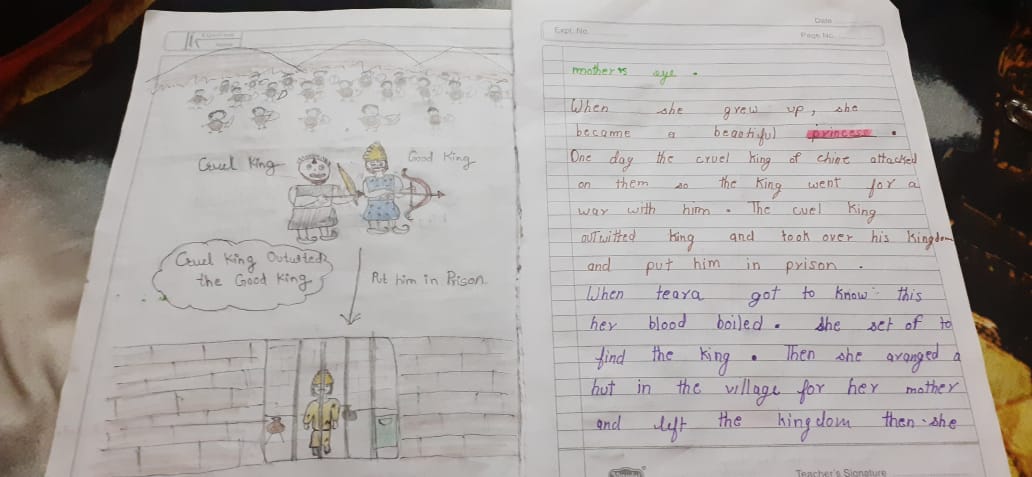 Cruel King
Good King
Cruel King Outwitted
the Good King
Put him in Prison.
Expl. No.
Date
Page No.
mother's eye.
When she grew up, she
became a beautiful princess.
One day the cruel king of chine attacked
on them so the King went for a
war with him. The cuel King
outwitted king and took over his kingdom
and put him in prison.
When teara got to know this
her blood boiled. She set of to
find the king. Then she aranged a
hut in the village for her mother
and left the kingdom then she
Teacher's Signature